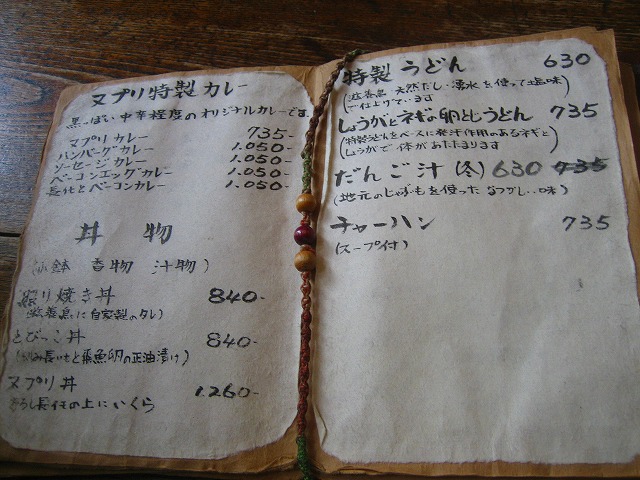 ヌプリ特製カレー
黒っぽい中辛程度のオリジナルカレーです
ヌプリカレー 735-
ハンバーグカレー 1.050-
ソーセージカレー 1.050-
ベーコンエッグカレー 1.050-
目玉とベーコンカレー 1.050-
丼物
(小鉢 香物 汁物)
照り焼き丼 840-
に自家製のタレ)
とびっこ丼 840-
長いもと飛魚卵の正油漬け)
ヌプリ丼 1.260-
長イモの上にいくら
特製うどん 630
天然だし、湧水を使って塩味
で仕上げています
しょうがとネギの卵とじうどん 735
(特製うどんをベースに発汁作用のあるネギと
しょうがで体があたたまります)
だんご汁(冬) 630 735
(地元のじゃがいもを使ったなつかしい味)
チャーハン 735
(スープ付)